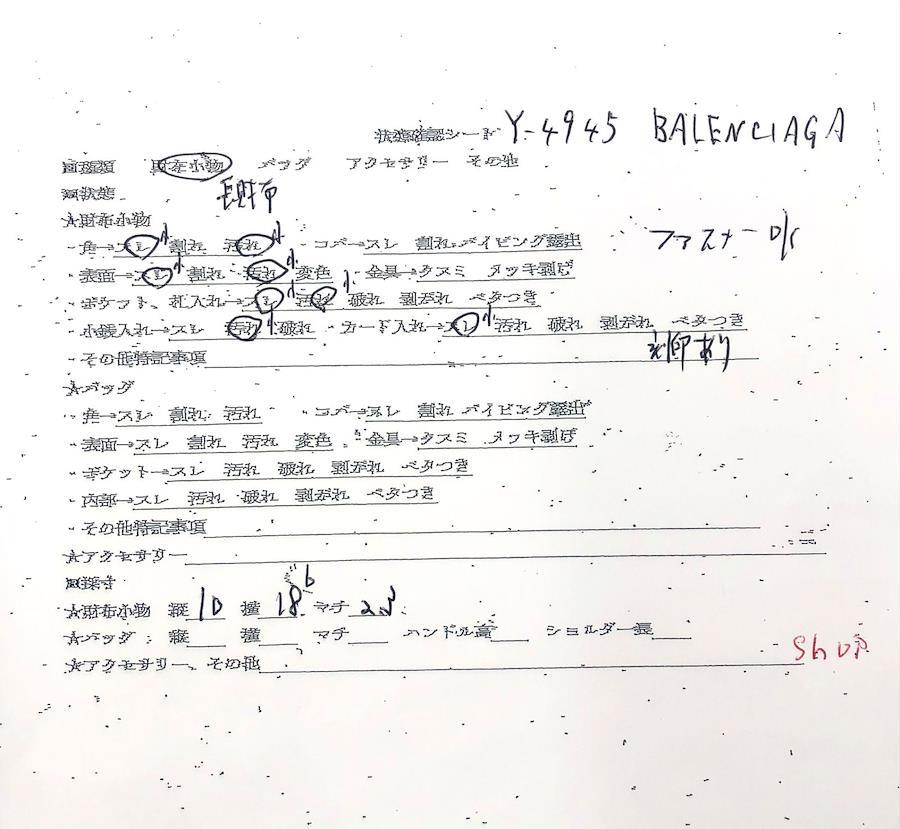 状態確認シート Y-4945 BALENCIAGA
種類 財布小物 バッグ アクセサリー その他
■状態 長財布
★財布小物
・角→スレ小 割れ 汚れ小 ・コバ→スレ 割れ パイピング露出 ファスナーOK
・表面→スレ小 割れ 汚れ小 変色 ・金具→クスミ メッキ剥げ
・ポケット、札入れ→スレ小 汚れ小 破れ 剥がれ ベタつき
・小銭入れ→スレ 汚れ小 破れ ・カード入れ→スレ小 汚れ 破れ 剥がれ ベタつき
・その他特記事項 刻印あり
★バッグ
・角→スレ 割れ 汚れ ・コバ→スレ 割れ パイピング露出
・表面→スレ 割れ 汚れ 変色 ・金具→クスミ メッキ剥げ
・ポケット→スレ 汚れ 破れ 剥がれ ベタつき
・内部→スレ 汚れ 破れ 剥がれ ベタつき
・その他特記事項
★アクセサリー
■採寸
★財布小物 縦 10 横 18 マチ
★バッグ: 縦 横 マチ ハンドル高 ショルダー長
★アクセサリー、その他 Shop